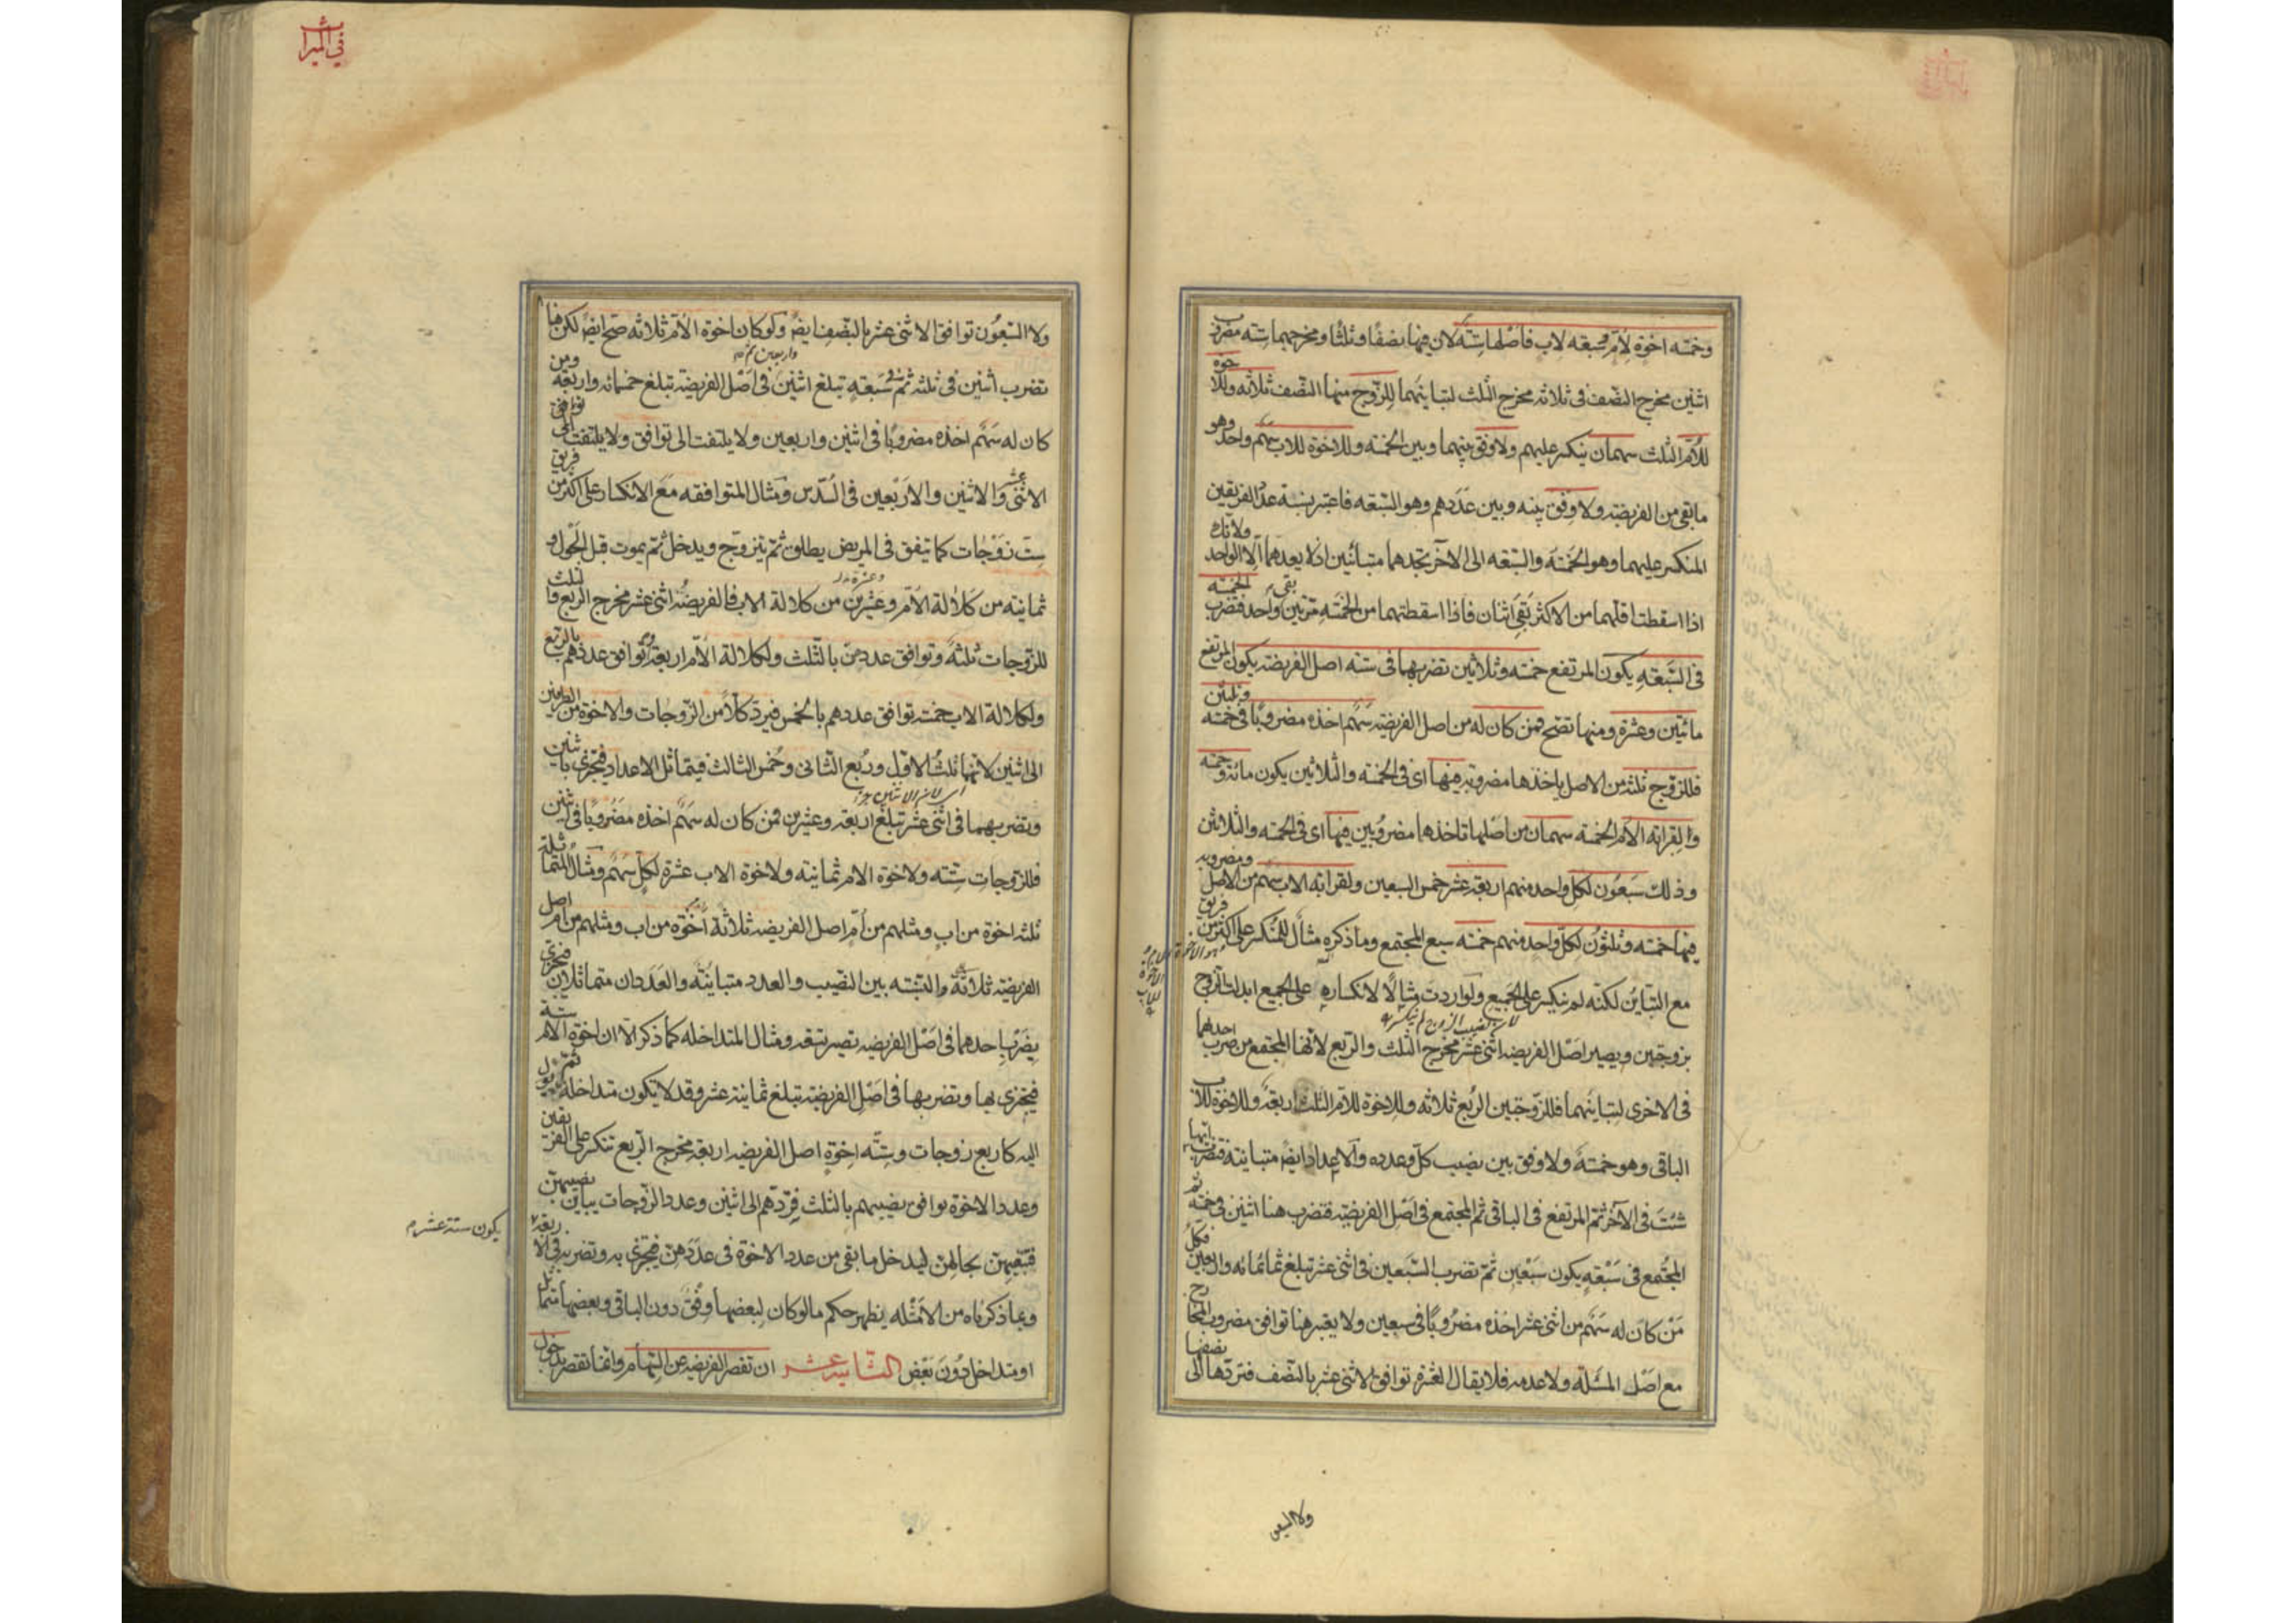 وخمسه اخوة لأم وسبعه لاب فاصلها ستة لان فيها نصفا وثلثا ومخرجهما سته مضروب
اثنين مخرج النصف فى ثلاثه مخرج الثلث لتباينهما للزوج منها النصف ثلاثه وللاخوة
للأم الثلث سهمان ينكسر عليهم ولا وفق بينهما وبين الخمسه وللاخوة للاب سهم واحد وهو
مابقى من الفريضه ولا وفق بينه وبين عددهم وهو السبعه فاعتبر نسبة عدد الفريقين
المنكسر عليهما وهو الخمسة والسبعه الى الآخر تجدهما متباينين اذ لا يعدهما الا الواحد ولانك
اذا اسقطت اقلهما من الاكثر بقى اثنان فاذا اسقطتهما من الخمسه مرتين بقى واحد فتضرب الخمسه
فى السبعه يكون المرتفع خمسه وثلاثين تضربها فى سته اصل الفريضه يكون المرتفع
مائتين وعشرة ومنها تصح فمن كان له من اصل الفريضه سهم اخذه مضروبا فى خمسه وثلثين
فللزوج ثلثه من الاصل ياخذها مضروبه فيها اى فى الخمسه والثلاثين يكون مائه وخمسه
ولقرابه الأم الخمسه سهمان من اصلها تاخذها مضروبين فيها اى فى الخمسه والثلاثين
وذلك سبعون لكل واحد منهم اربعه عشر خمس السبعين ولقرابه الاب سهم من الاصل ومضروبه
فيها خمسه وثلثون لكل واحد منهم خمسه سبع المجتمع وما ذكره مثال للمنكسر على اكثر من فريق
هو الاخوة للام والاخوة للاب
مع التباين لكنه لم ينكسر على الجميع ولو اردت مثالا لانكساره على الجميع ابدلت الزوج
لان نصيب الزوج لم ينكسر
بزوجتين ويصير اصل الفريضه اثنى عشر مخرج الثلث والربع لانها المجتمع من ضرب احديهما
فى الاخرى لتباينهما فللزوجتين الربع ثلاثه وللاخوة للام الثلث اربعة وللاخوة للاب
الباقى وهو خمسة ولا وفق بين نصيب كل وعدده والاعداد ايض متباينة فتضرب ايها
شئت فى الآخر ثم المرتفع فى الباقى ثم المجتمع فى اصل الفريضه فتضرب هنا اثنين فى خمسه ثم
المجتمع فى سبعه يكون سبعين ثم تضرب السبعين فى اثنى عشر تبلغ ثمانمائه واربعين فكل
من كان له سهم من اثنى عشر اخذه مضروبا فى سبعين ولا يعتبر هنا توافق مضروب المخارج
مع اصل المسئله ولا عدمه فلا يقال العشرة توافق الاثنى عشر بالنصف فتردها الى نصفها
ولا السبعين
فى الميراث
ولا السبعون توافق الاثنى عشر بالنصف ايض ولو كان اخوة الأم ثلاثه صح ايض لكن هنا
تضرب اثنين فى ثلثه ثم فى سبعه تبلغ اثنين واربعين ثم فى اصل الفريضه تبلغ خمسمائه واربعة ومن
كان له سهم اخذه مضروبا فى اثنين واربعين ولا يلتفت الى توافق ولا يلتفت الى توافق
الاثنى عشر والاثنين والاربعين فى السدس ومثال المتوافقه مع الانكسار على اكثر من فريق
ست زوجات كما يتفق فى المريض يطلق ثم يتزوج ويدخل ثم يموت قبل الحول و
ثمانيه من كلالة الأم وعشرة من كلالة الاب فالفريضه اثنى عشر مخرج الربع والثلث
للزوجات ثلثه وتوافق عددهن بالثلث ولكلالة الأم اربعة وتوافق عددهم بالربع
ولكلالة الاب خمسة توافق عددهم بالخمس فيرد كلا من الزوجات والاخوة من الطرفين
الى اثنين لانهما ثلث الاول وربع الثانى وخمس الثالث فيتماثل الاعداد فتجتزى باثنين
وتضربهما فى اثنى عشر تبلغ اربعه وعشرين فمن كان له سهم اخذه مضروبا فى اثنين
فللزوجات سته ولاخوة الام ثمانيه ولاخوة الاب عشرة لكل سهم ومثال المتماثله
ثلثه اخوة من اب ومثلهم من أم اصل الفريضه ثلاثة اخوة من اب ومثلهم من أم اصل
الفريضه ثلاثة والنسبه بين النصيب والعدد متباينة والعددان متماثلان فتجتزى
بضرب احدهما فى اصل الفريضه تصير تسعه ومثال المتداخله كما ذكر الا ان اخوة الأم ستة
فتجتزى بها وتضربها فى اصل الفريضه تبلغ ثمانية عشر وقد لا يكون متداخله ثم تؤل
اليه كاربع زوجات وسته اخوة اصل الفريضه اربعه مخرج الربع تنكسر على الفريقين
وعدد الاخوة يوافق نصيبهم بالثلث فردهم الى اثنين وعدد الزوجات يباين نصيبهن
فتبقيهن بحالهن ليدخل ما بقى من عدد الاخوة فى عددهن فتجتزى به وتضربه فى الاربعة
يكون ستة عشر م
وبما ذكرناه من الامثله يظهر حكم ما لو كان لبعضها وفق دون الباقى وبعضها متماثل
او متداخل دون بعض الثانيه عشر ان تقصر الفريضه عن السهام وانما تقصر بدخول